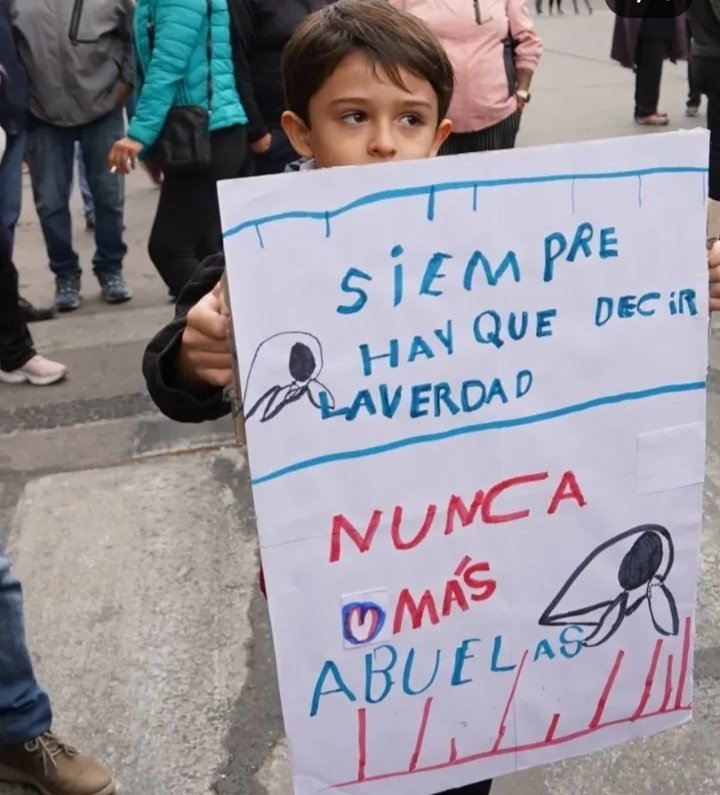 SIEMPRE
HAY QUE DECIR
LAVERDAD
NUNCA
MÁS
ABUELAS